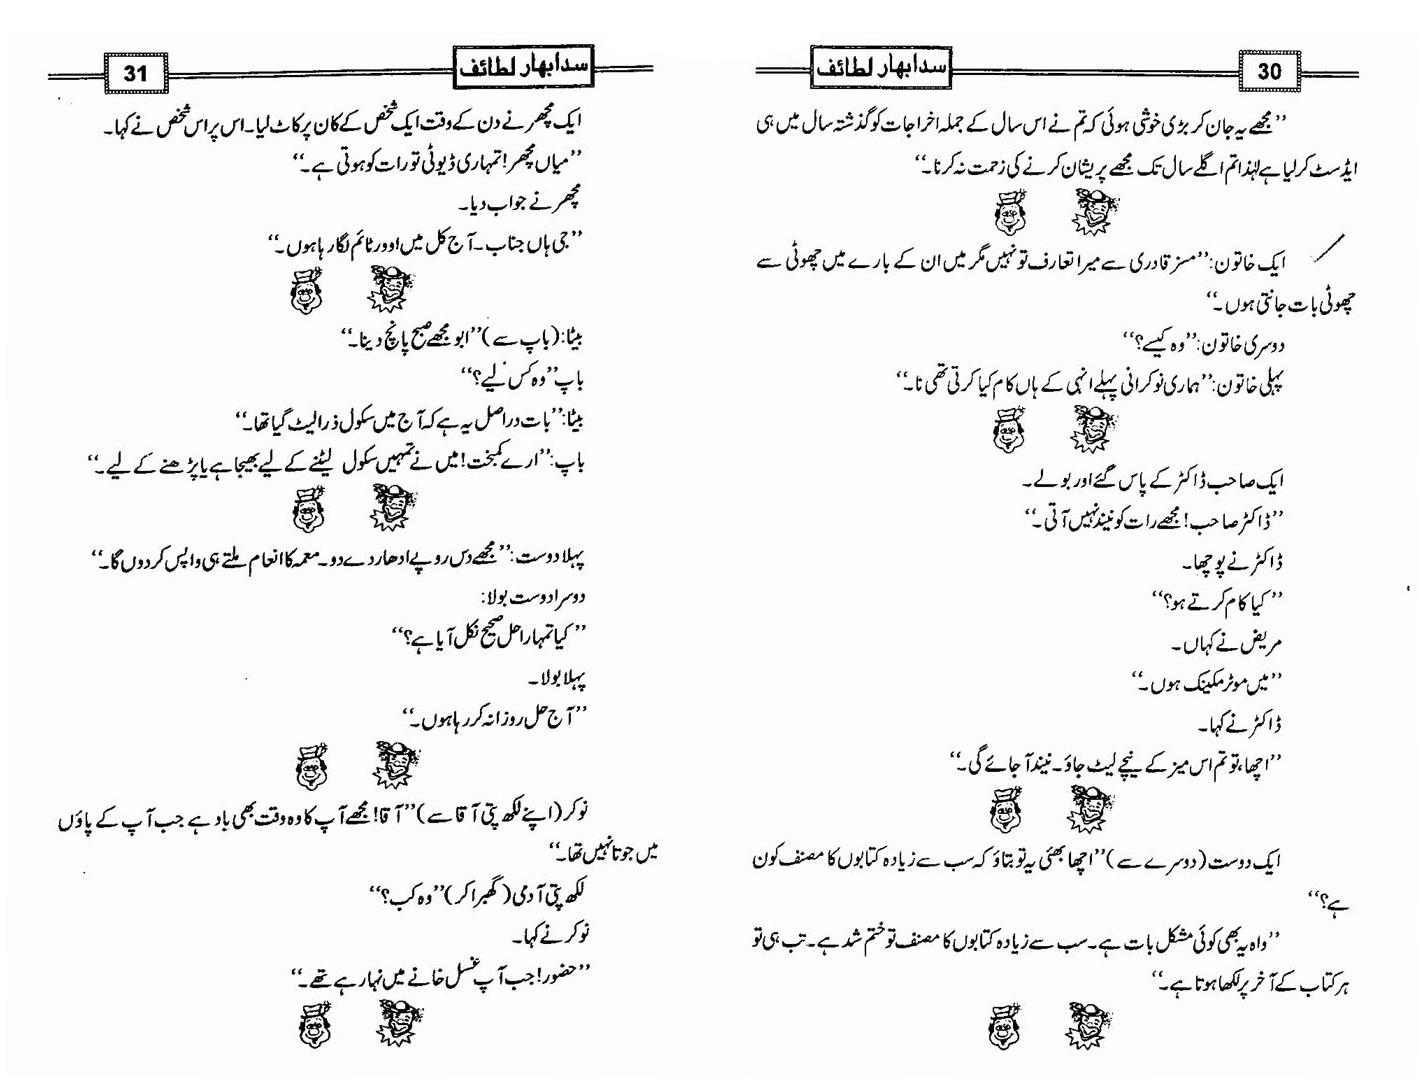 30
سدا بہار لطائف
’’مجھے یہ جان کر بڑی خوشی ہوئی کہ تم نے اس سال کے جملہ اخراجات کو گذشتہ سال میں ہی
ایڈسٹ کر لیا ہے لہٰذا تم اگلے سال تک مجھے پریشان کرنے کی زحمت نہ کرنا۔‘‘
ایک خاتون: ’’مسز قادری سے میرا تعارف تو نہیں مگر میں ان کے بارے میں چھوٹی سے
چھوٹی بات جانتی ہوں۔‘‘
دوسری خاتون: ’’وہ کیسے؟‘‘
پہلی خاتون: ’’ہماری نوکرانی پہلے انہی کے ہاں کام کیا کرتی تھی نا۔‘‘
ایک صاحب ڈاکٹر کے پاس گئے اور بولے۔
’’ڈاکٹر صاحب! مجھے رات کو نیند نہیں آتی۔‘‘
ڈاکٹر نے پوچھا۔
’’کیا کام کرتے ہو؟‘‘
مریض نے کہاں۔
’’میں موٹر مکینک ہوں۔‘‘
ڈاکٹر نے کہا۔
’’اچھا، تو تم اس میز کے نیچے لیٹ جاؤ۔ نیند آ جائے گی۔‘‘
ایک دوست (دوسرے سے) ’’اچھا بھئی یہ تو بتاؤ کہ سب سے زیادہ کتابوں کا مصنف کون
ہے؟‘‘
’’واہ یہ بھی کوئی مشکل بات ہے۔ سب سے زیادہ کتابوں کا مصنف تو ختم شد ہے۔ تب ہی تو
ہر کتاب کے آخر پر لکھا ہوتا ہے۔‘‘
سدا بہار لطائف
31
ایک مچھر نے دن کے وقت ایک شخص کے کان پر کاٹ لیا۔ اس پر اس شخص نے کہا۔
’’میاں مچھر! تمہاری ڈیوٹی تو رات کو ہوتی ہے۔‘‘
مچھر نے جواب دیا۔
’’جی ہاں جناب۔ آج کل میں اوور ٹائم لگا رہا ہوں۔‘‘
بیٹا: (باپ سے) ’’ابو مجھے صبح پانچ دینا۔‘‘
باپ ’’وہ کس لیے؟‘‘
بیٹا: ’’بات دراصل یہ ہے کہ آج میں سکول ذرا لیٹ گیا تھا۔‘‘
باپ: ’’ارے کمبخت! میں نے تمہیں سکول لیٹنے کے لیے بھیجا ہے یا پڑھنے کے لیے۔‘‘
پہلا دوست: ’’مجھے دس روپے ادھار دے دو۔ معمہ کا انعام ملتے ہی واپس کر دوں گا۔‘‘
دوسرا دوست بولا:
’’کیا تمہارا حل صحیح نکل آیا ہے؟‘‘
پہلا بولا۔
’’آج حل روزانہ کر رہا ہوں۔‘‘
نوکر (اپنے لکھ پتی آقا سے) ’’آقا! مجھے آپ کا وہ وقت بھی یاد ہے جب آپ کے پاؤں
میں جوتا نہیں تھا۔‘‘
لکھ پتی آدمی (گھبرا کر) ’’وہ کب؟‘‘
نوکر نے کہا۔
’’حضور! جب آپ غسل خانے میں نہا رہے تھے۔‘‘